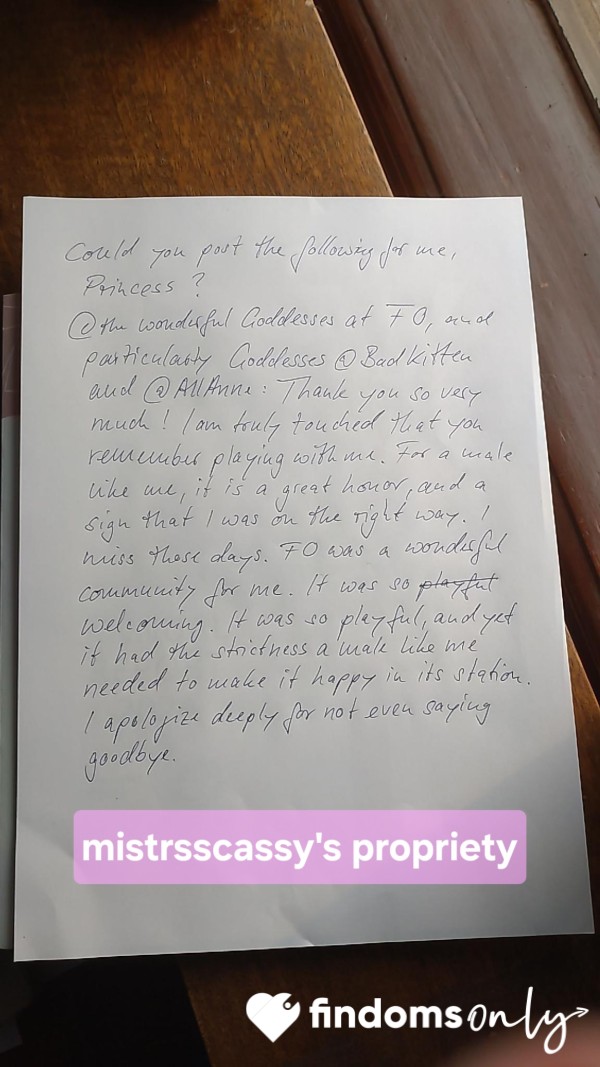 Could you post the following for me,
Princess?
@the wonderful Goddesses at FO, and
particularly Goddesses @BadKitten
and @AllAnne: Thank you so very
much! I am truly touched that you
remember playing with me. For a male
like me, it is a great honor, and a
sign that I was on the right way. I
miss those days. FO was a wonderful
community for me. It was so playful
welcoming. It was so playful, and yet
it had the strictness a male like me
needed to make it happy in its station.
I apologize deeply for not even saying
goodbye.
mistrsscassy's propriety
findomsonly